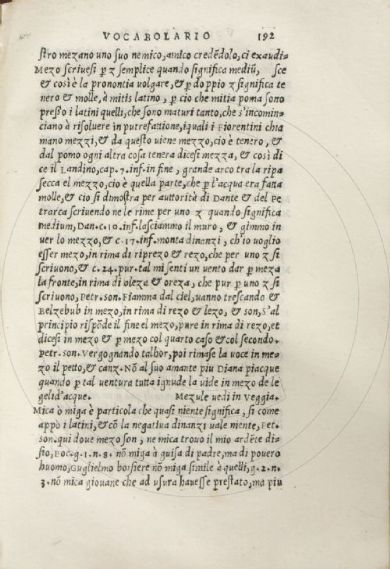 VOCABOLARIO 192
stro mezano uno suo nemico, amico credēdolo, ci exaudi⸗
Mezo scriuesi ꝑ z semplice quando significa mediū, sce
& così è la prononcia volgare, & ꝑ doppio z significa te
nero & molle, à mitis latino, ꝑ cio che mitia poma sono
presso i latini quelli, che sono maturi tanto, che s'incomin⸗
ciano à risoluere in putrefattione, iquali i Fiorentini chia
mano mezzi, & da questo uiene mezzo, cio è tenero, &
dal pomo ogni altra cosa tenera dicesi mezza, & così di
ce il Landino, cap. 7. inf. in fine, grande arco tra la ripa
secca el mezzo, cio è quella parte, che ꝑ l'acqua era fatta
molle, & cio si dimostra per auttorità di Dante & del Pe
trarca scriuendo ne le rime per uno z quando significa
medium, Dan. c. 10. inf. lasciammo il muro, & gimmo in
uer lo mezzo, & c. 17. inf. monta dinenzi, ch'io uoglio
esser mezo, in rima di riprezo & rezo, che per uno z si
scriuono, & c. 24. pur. tal mi senti un uento dar ꝑ meza
la fronte, in rima di oleza & oreza, che pur ꝑ uno z si
scriuono, Petr. son. Fiamma dal ciel, uanno trescando &
Belzebub in mezo, in rima di rezo & lezo, & son, S'al
principio rispōde il fine el mezo, pure in rima di rezo, et
dicesi in mezo & ꝑ mezo col quarto caso & col secondo.
petr. son. Vergognando talhor, poi rimase la uoce in me⸗
zo il petto, & canz. Nō al suo amante piu Diana piacque
quando ꝑ tal uentura tutta ignuda la uide in mezo de le
gelid'acque. Mezule uedi in Veggia.
Mica ò miga è particola che quasi niente significa, si come
appò i latini, & cō la negatiua dinanzi uale niente, Pet⸗
son. qui doue mezo son, ne mica trouo il mio ardēte dis
sio, Boc. g. 1. n. 8. nō miga à guisa di padre, ma di pouero
huomo, Guglielmo borsiere nō miga simile à quelli, g. 2. n.
3. nō mica giouane che ad usura hauesse prestato, ma piu